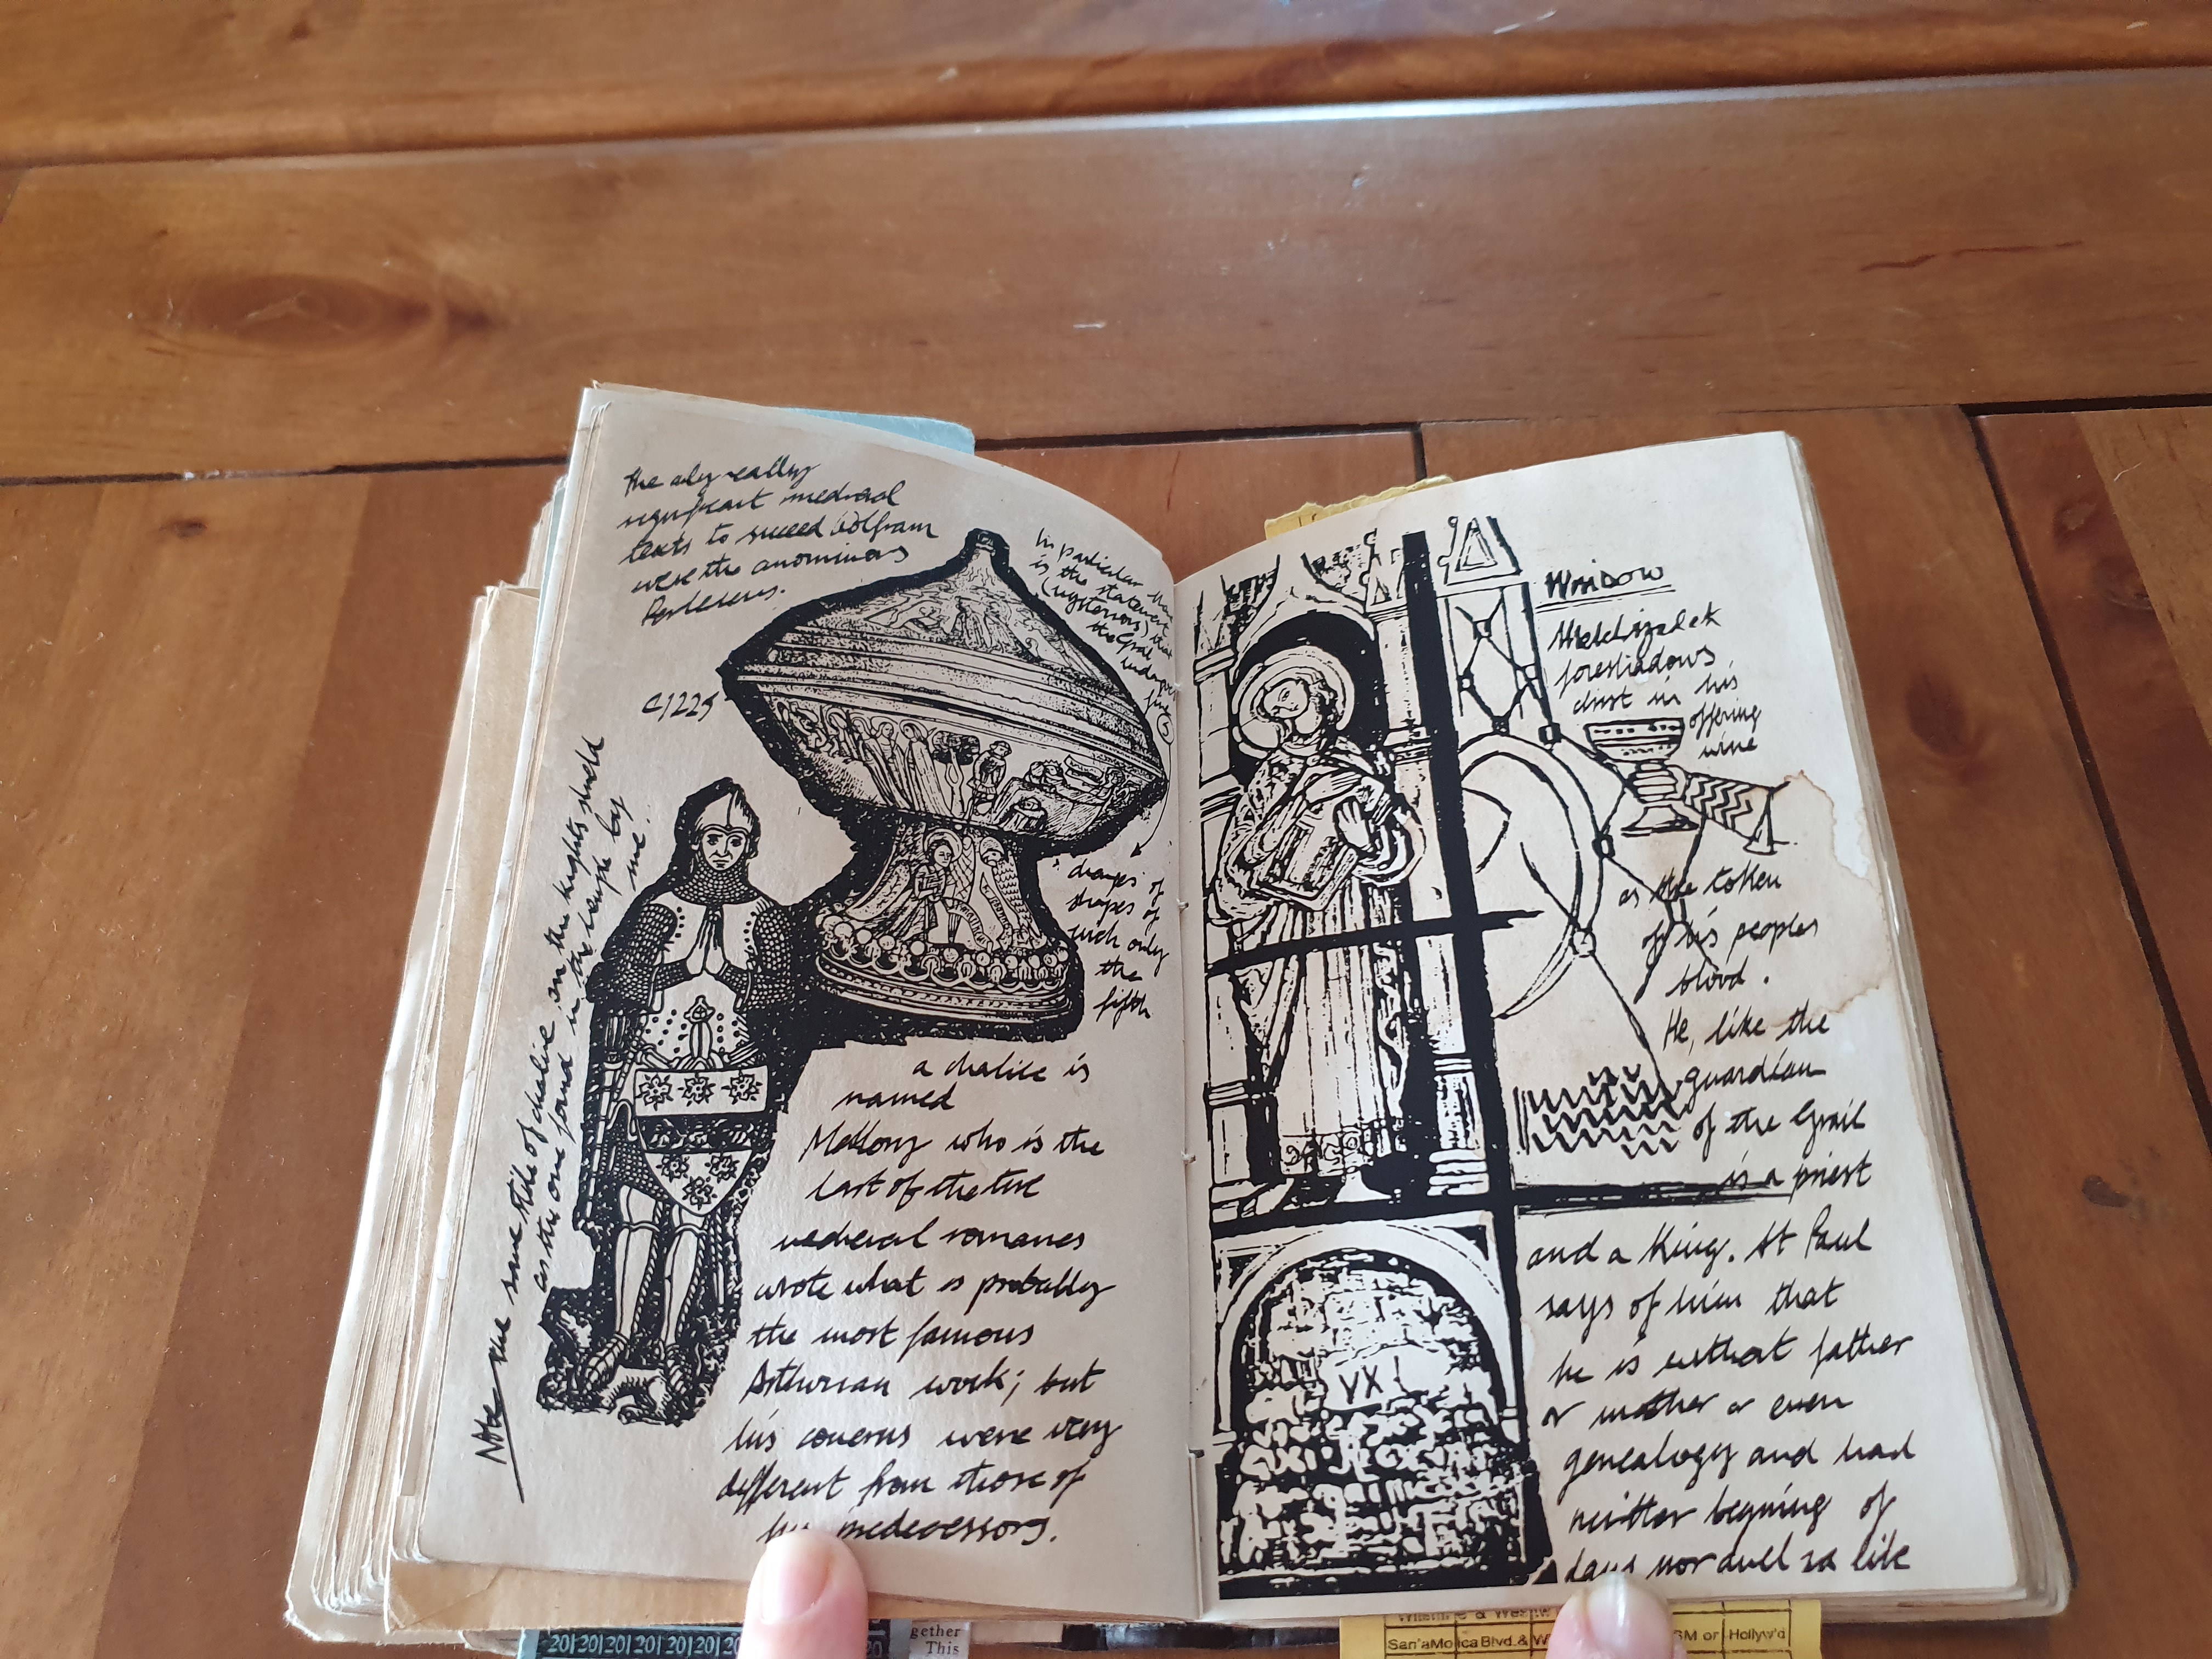 the only really
significant medieval
texts to succeed Wolfram
were the anominous
Perlesvus.
In particular
is the statement that
(mysterious) that
the Grail
undergoes
five
5
C1225
changes of
shapes of
wich only
the
fifth
Note the same title of chalice on the knights shield
as the one found in the temple by
me.
a chalice is
named
Mallory who is the
last of the true
medieval romances
wrote what is probably
the most famous
Arthurian work; but
his conerns were very
different from those of
his predecessors.
Window
Melchizadek
foreshadows
christ in his
offering
wine
as the token
of his peoples
blood.
He, like the
guardian
of the Grail
is a priest
and a King. St Paul
says of him that
he is without father
or mother or even
genealogy and had
neither begining of
days nor
like
VX
20 20 20 20 20 20 20
20
gether
This
Wilshire & West
San'aMonicaBlvd. & W
SM or Hollyw'd